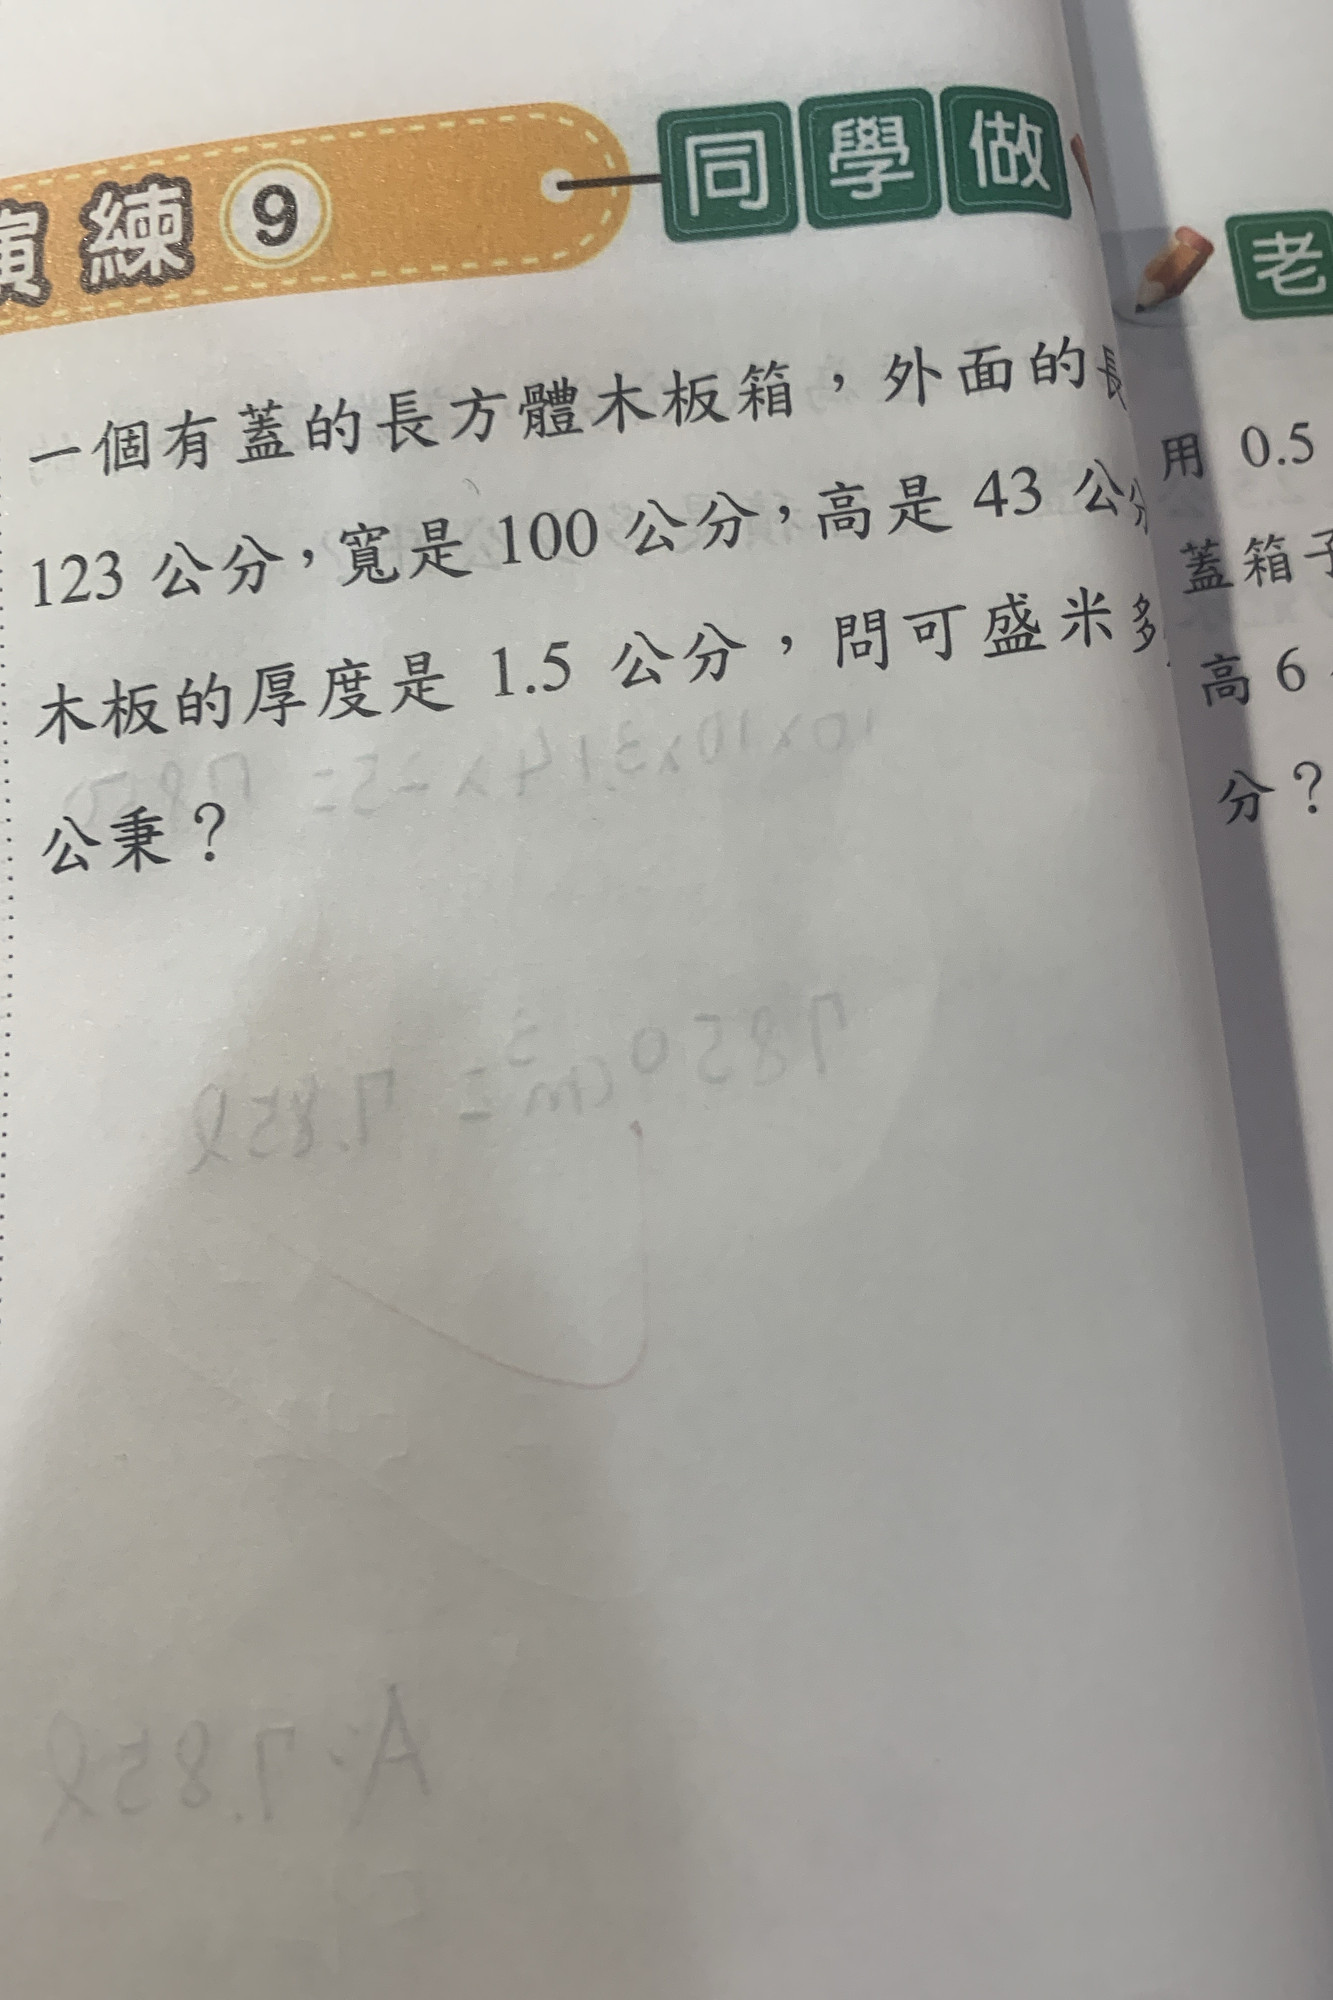 演練 9 同學做
一個有蓋的長方體木板箱，外面的長
123 公分，寬是 100 公分，高是 43 公分
木板的厚度是 1.5 公分，問可盛米多
公秉？
老
用 0.5
蓋箱子
高 6
分？